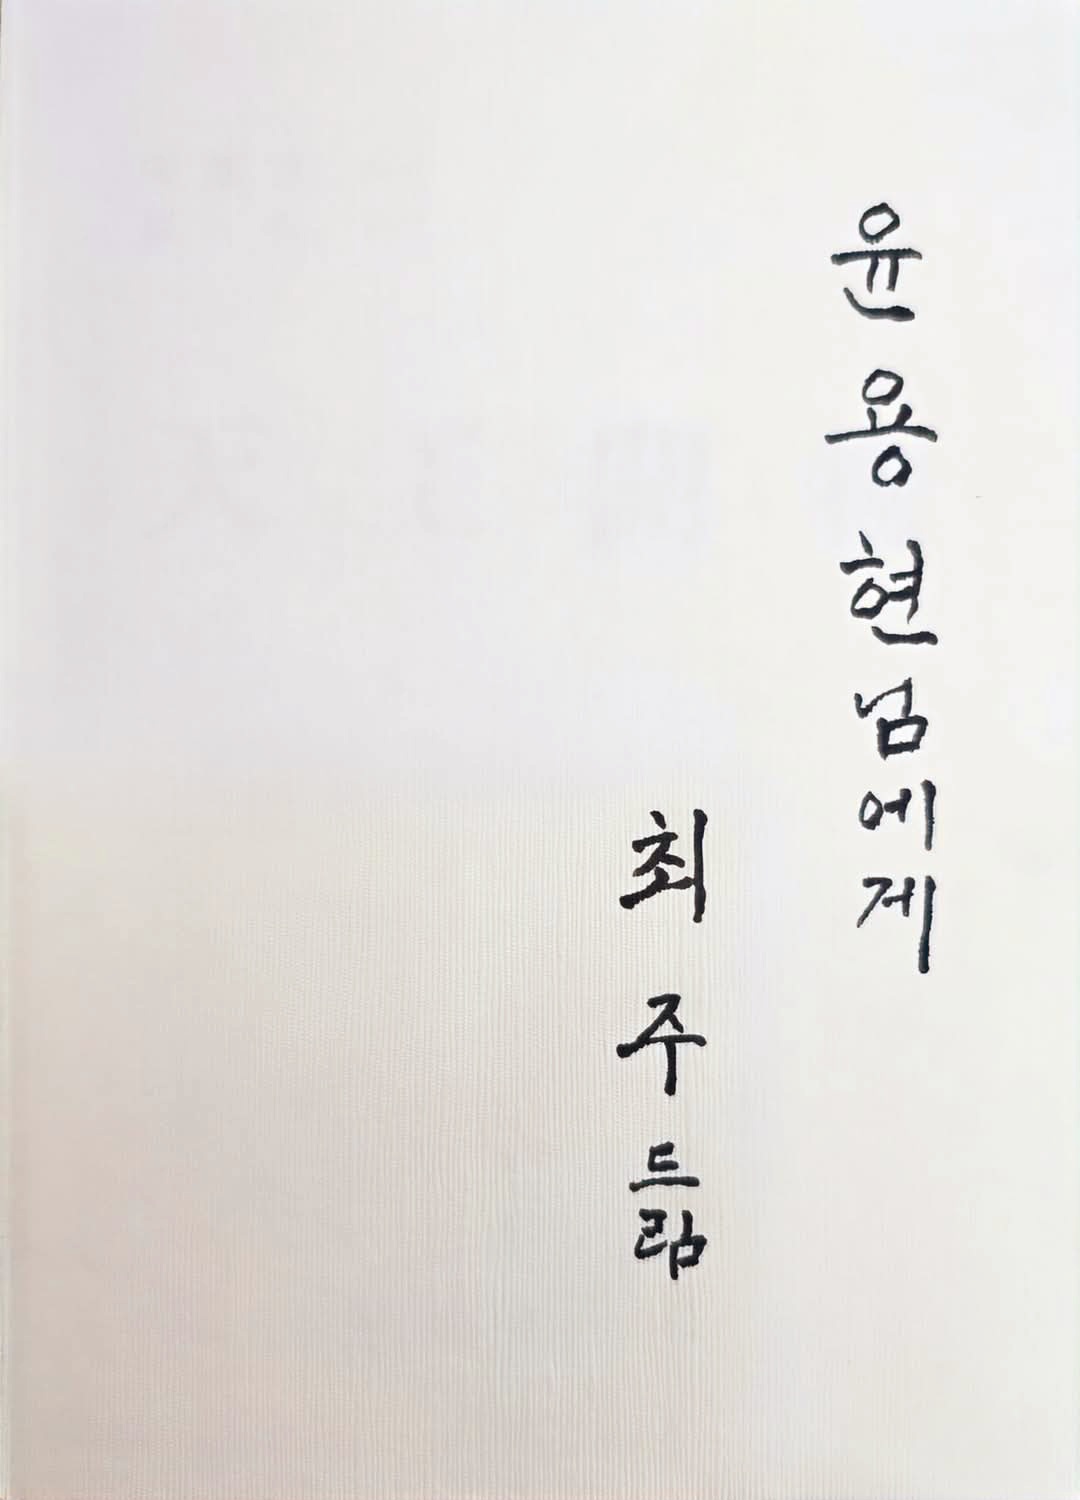 윤용현님에게
최주드림